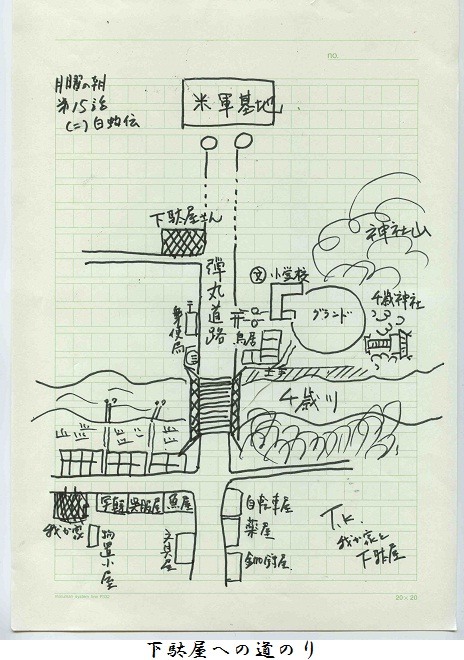 no.
月曜の朝
第15話
(二)白蛇伝
米軍基地
下駄屋さん
弾丸道路
文
小学校
神社山
グランド
千歳神社
鳥居
郵便局
土手
千歳川
呉服屋
魚屋
我が家
物置小屋
文具屋
自転車屋
薬屋
T.K.
我が家と
下駄屋
20×20
下駄屋への道のり